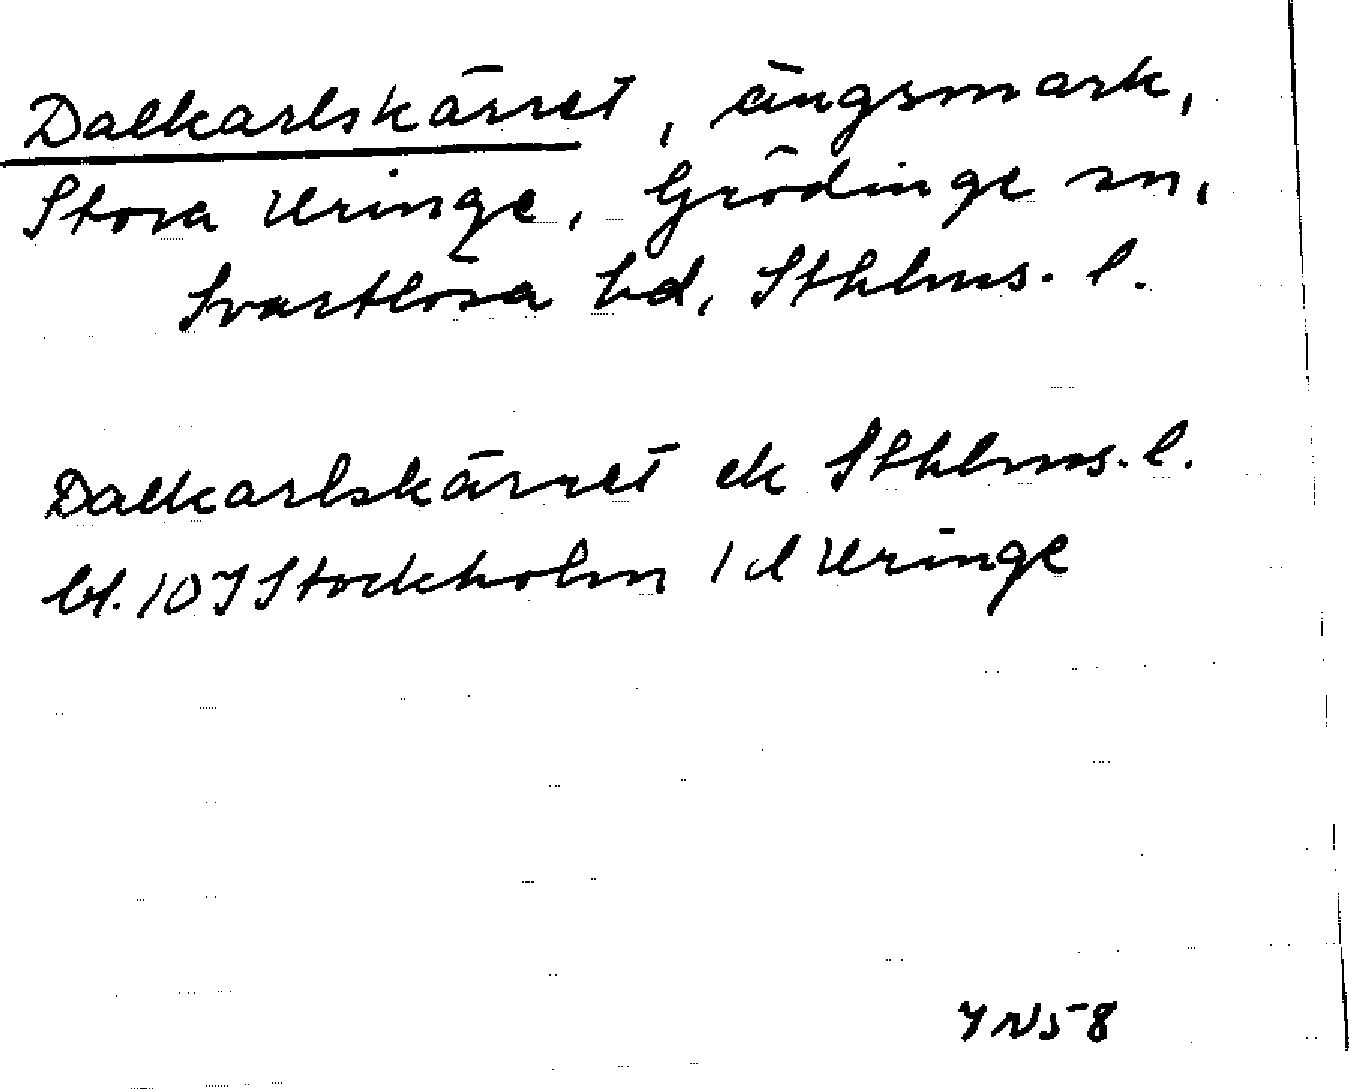 Dalkarlskärret, ängsmark,
Stora Uringe, Grödinge sn,
Svartlösa hd, Sthlms. l.
Dalkarlskärret ek Sthlms. l.
bl. 10I Stockholm 1 d Uringe
YNS 8